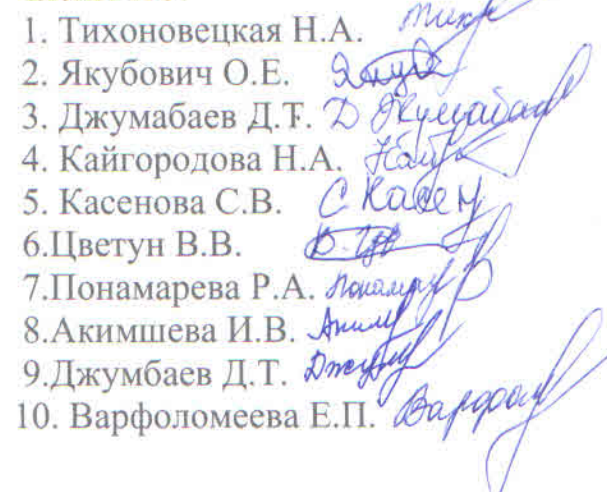 1. Тихоновецкая Н.А.
2. Якубович О.Е.
3. Джумабаев Д.Т. Д Жумабаев
4. Кайгородова Н.А.
5. Касенова С.В. С Касен
6.Цветун В.В.
7.Понамарева Р.А.
8.Акимшева И.В.
9.Джумбаев Д.Т.
10. Варфоломеева Е.П. Варфол